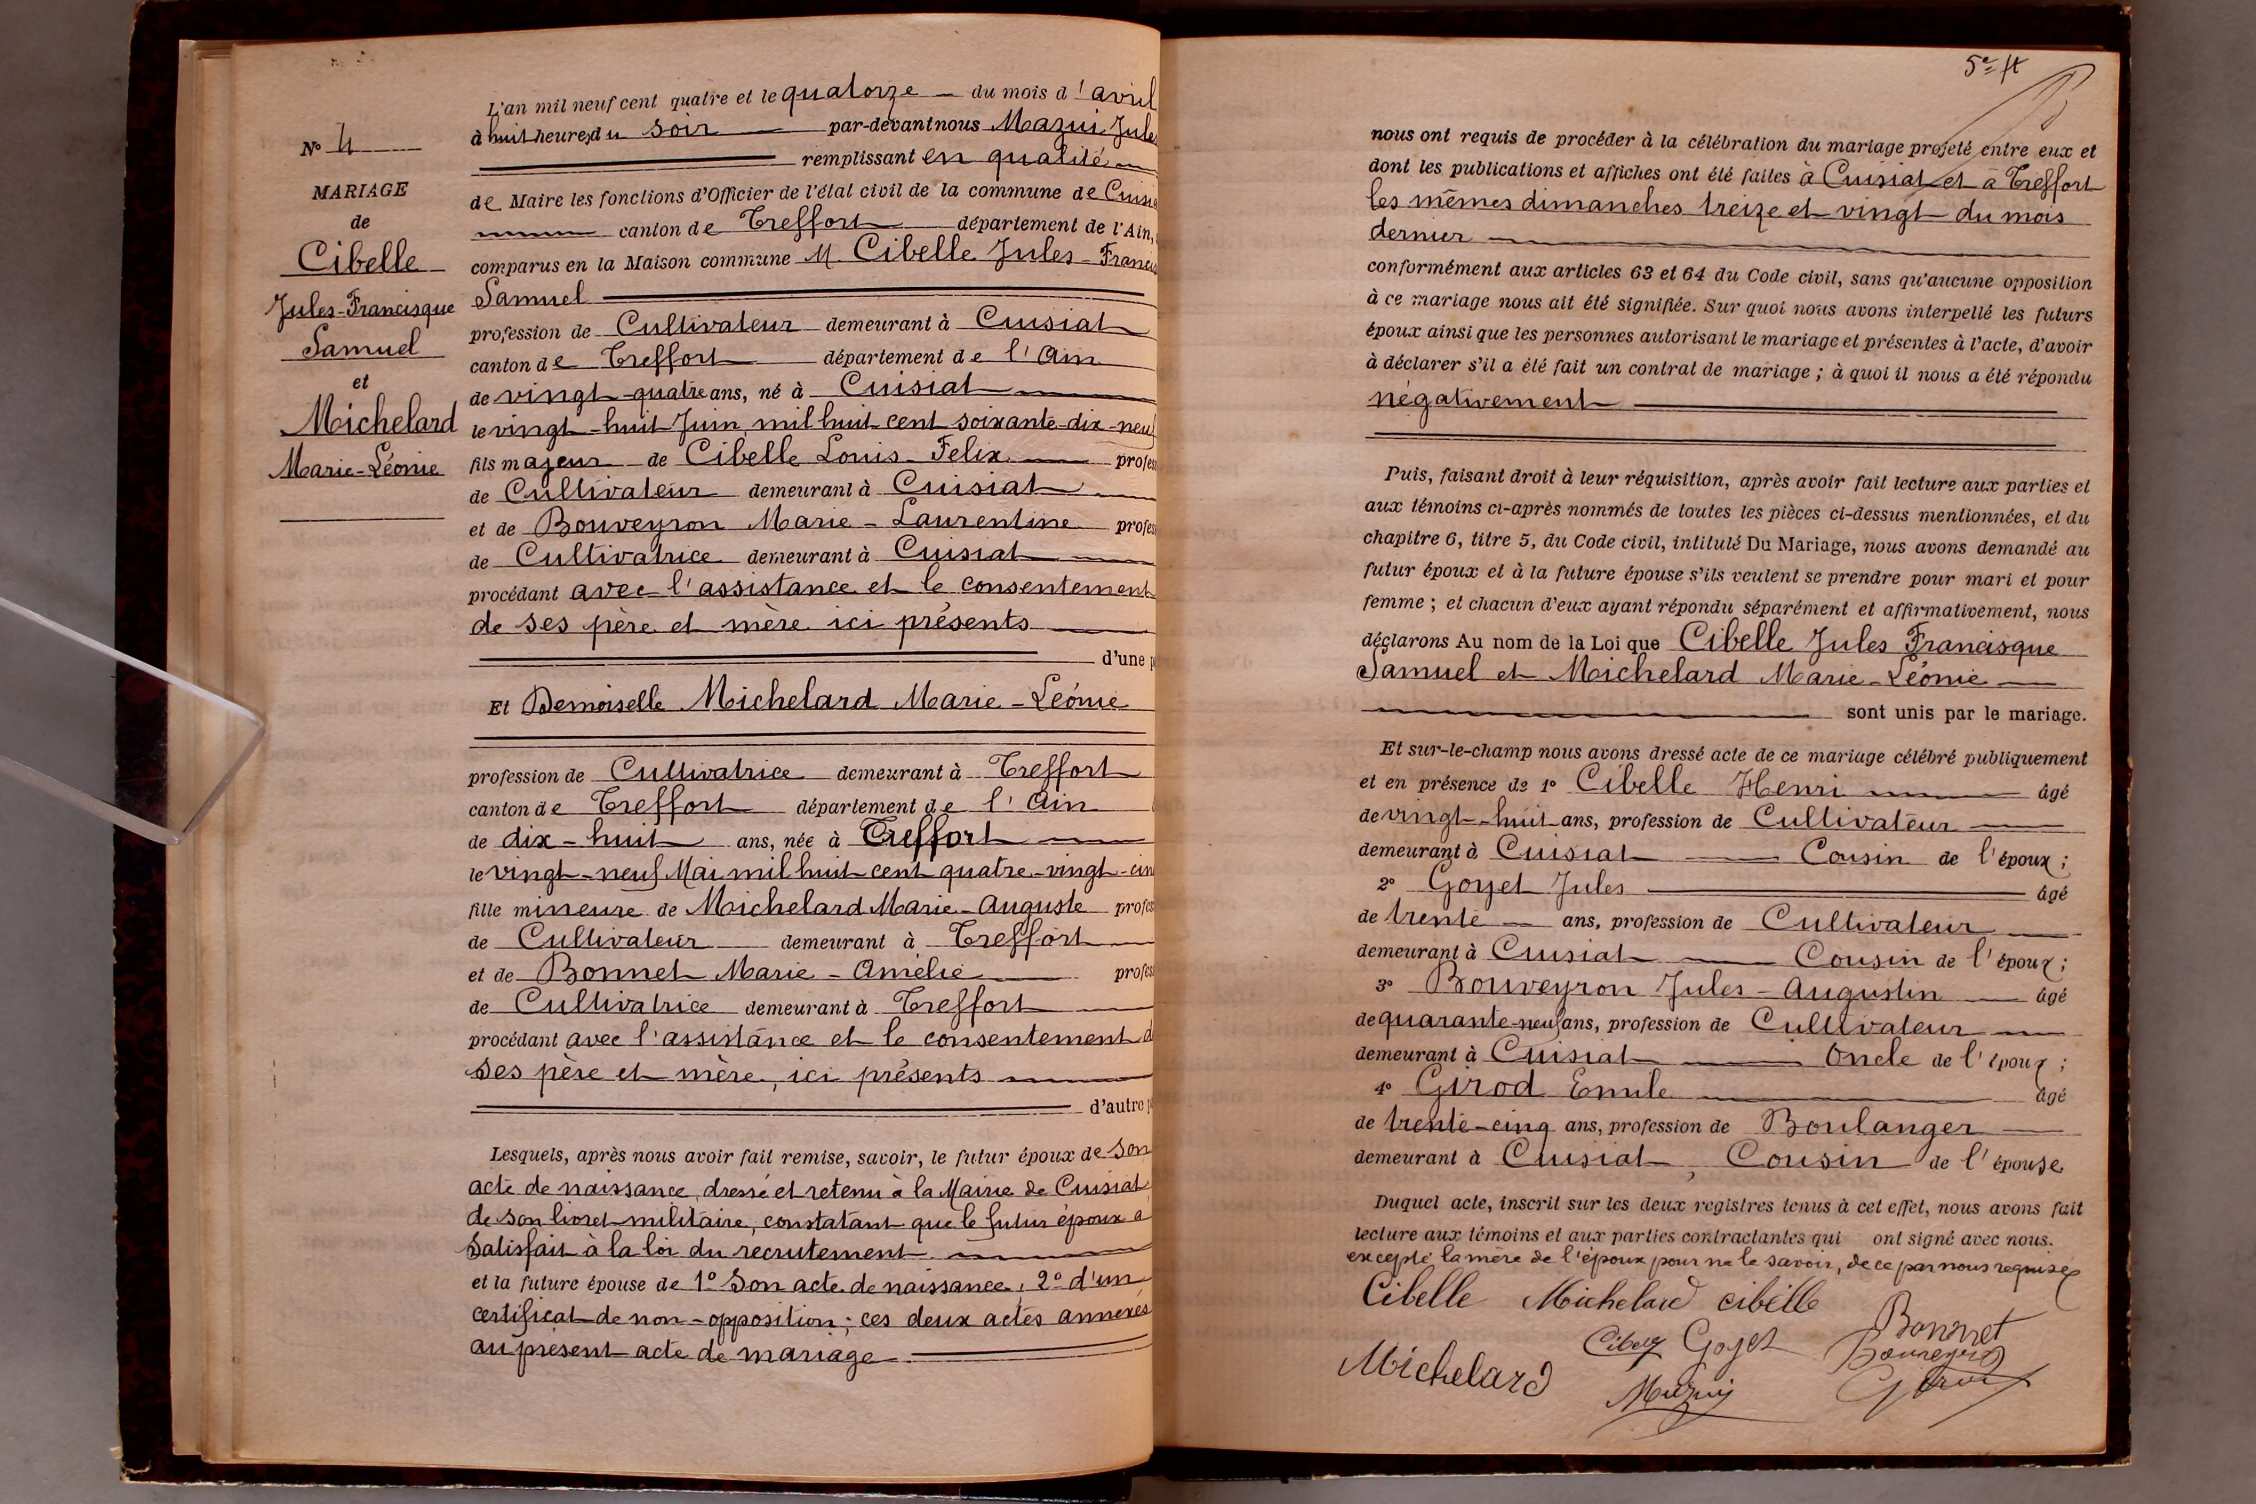 L'an mil neuf cent quatre et le quatorze du mois d'avril
à huit heures du soir par-devant nous Mazui Jules
remplissant en qualité
de Maire les fonctions d'Officier de l'état civil de la commune de Cuisia
canton de Treffort département de l'Ain,
comparus en la Maison commune M Cibelle Jules-Francis
Samuel
profession de Cultivateur demeurant à Cuisiat
canton de Treffort département de l'Ain
de vingt-quatre ans, né à Cuisiat
le vingt-huit Juin mil huit cent soixante-dix-neuf
fils majeur de Cibelle Louis-Felix profes
de Cultivateur demeurant à Cuisiat
et de Bouveyron Marie-Laurentine profes
de Cultivatrice demeurant à Cuisiat
procédant avec l'assistance et le consentement
de ses père et mère ici présents
d'une p
Et Demoiselle Michelard Marie-Léonie
profession de Cultivatrice demeurant à Treffort
canton de Treffort département de l'Ain
de dix-huit ans, née à Treffort
le vingt-neuf Mai mil huit cent quatre-vingt-cin
fille mineure de Michelard Marie-Auguste profes
de Cultivateur demeurant à Treffort
et de Bonnet Marie-Amélie profes
de Cultivatrice demeurant à Treffort
procédant avec l'assistance et le consentement d
ses père et mère, ici présents
d'autre p
Lesquels, après nous avoir fait remise, savoir, le futur époux de son
acte de naissance, dressé et retenu à la Mairie de Cuisiat,
de son livret militaire, constatant que le futur époux a
satisfait à la loi du recrutement
et la future épouse de 1º Son acte de naissance, 2º d'un
certificat de non-opposition; ces deux actes annexés
au présent acte de mariage
Nº 4
MARIAGE
de
Cibelle
Jules-Francisque
Samuel
et
Michelard
Marie-Léonie
5e ft
nous ont requis de procéder à la célébration du mariage projeté entre eux et
dont les publications et affiches ont été faites à Cuisiat et à Treffort
les mêmes dimanches treize et vingt du mois
dernier
conformément aux articles 63 et 64 du Code civil, sans qu'aucune opposition
à ce mariage nous ait été signifiée. Sur quoi nous avons interpellé les futurs
époux ainsi que les personnes autorisant le mariage et présentes à l'acte, d'avoir
à déclarer s'il a été fait un contrat de mariage ; à quoi il nous a été répondu
négativement
Puis, faisant droit à leur réquisition, après avoir fait lecture aux parties et
aux témoins ci-après nommés de toutes les pièces ci-dessus mentionnées, et du
chapitre 6, titre 5, du Code civil, intitulé Du Mariage, nous avons demandé au
futur époux et à la future épouse s'ils veulent se prendre pour mari et pour
femme ; et chacun d'eux ayant répondu séparément et affirmativement, nous
déclarons Au nom de la Loi que Cibelle Jules Francisque
Samuel et Michelard Marie-Léonie
sont unis par le mariage.
Et sur-le-champ nous avons dressé acte de ce mariage célébré publiquement
et en présence de 1º Cibelle Henri âgé
de vingt-huit ans, profession de Cultivateur
demeurant à Cuisiat Cousin de l'époux ;
2º Goyet Jules âgé
de trente ans, profession de Cultivateur
demeurant à Cuisiat Cousin de l'époux ;
3º Bouveyron Jules-Augustin âgé
de quarante-neuf ans, profession de Cultivateur
demeurant à Cuisiat Oncle de l'époux ;
4º Girod Emile âgé
de trente-cinq ans, profession de Boulanger
demeurant à Cuisiat, Cousin de l'épouse
Duquel acte, inscrit sur les deux registres tenus à cet effet, nous avons fait
lecture aux témoins et aux parties contractantes qui ont signé avec nous.
excepté la mère de l'époux pour ne le savoir, de ce par nous requise
Cibelle Michelard cibelle
Bonnet
Goyet
Bouveyron
Michelard
Mazuy
Girod